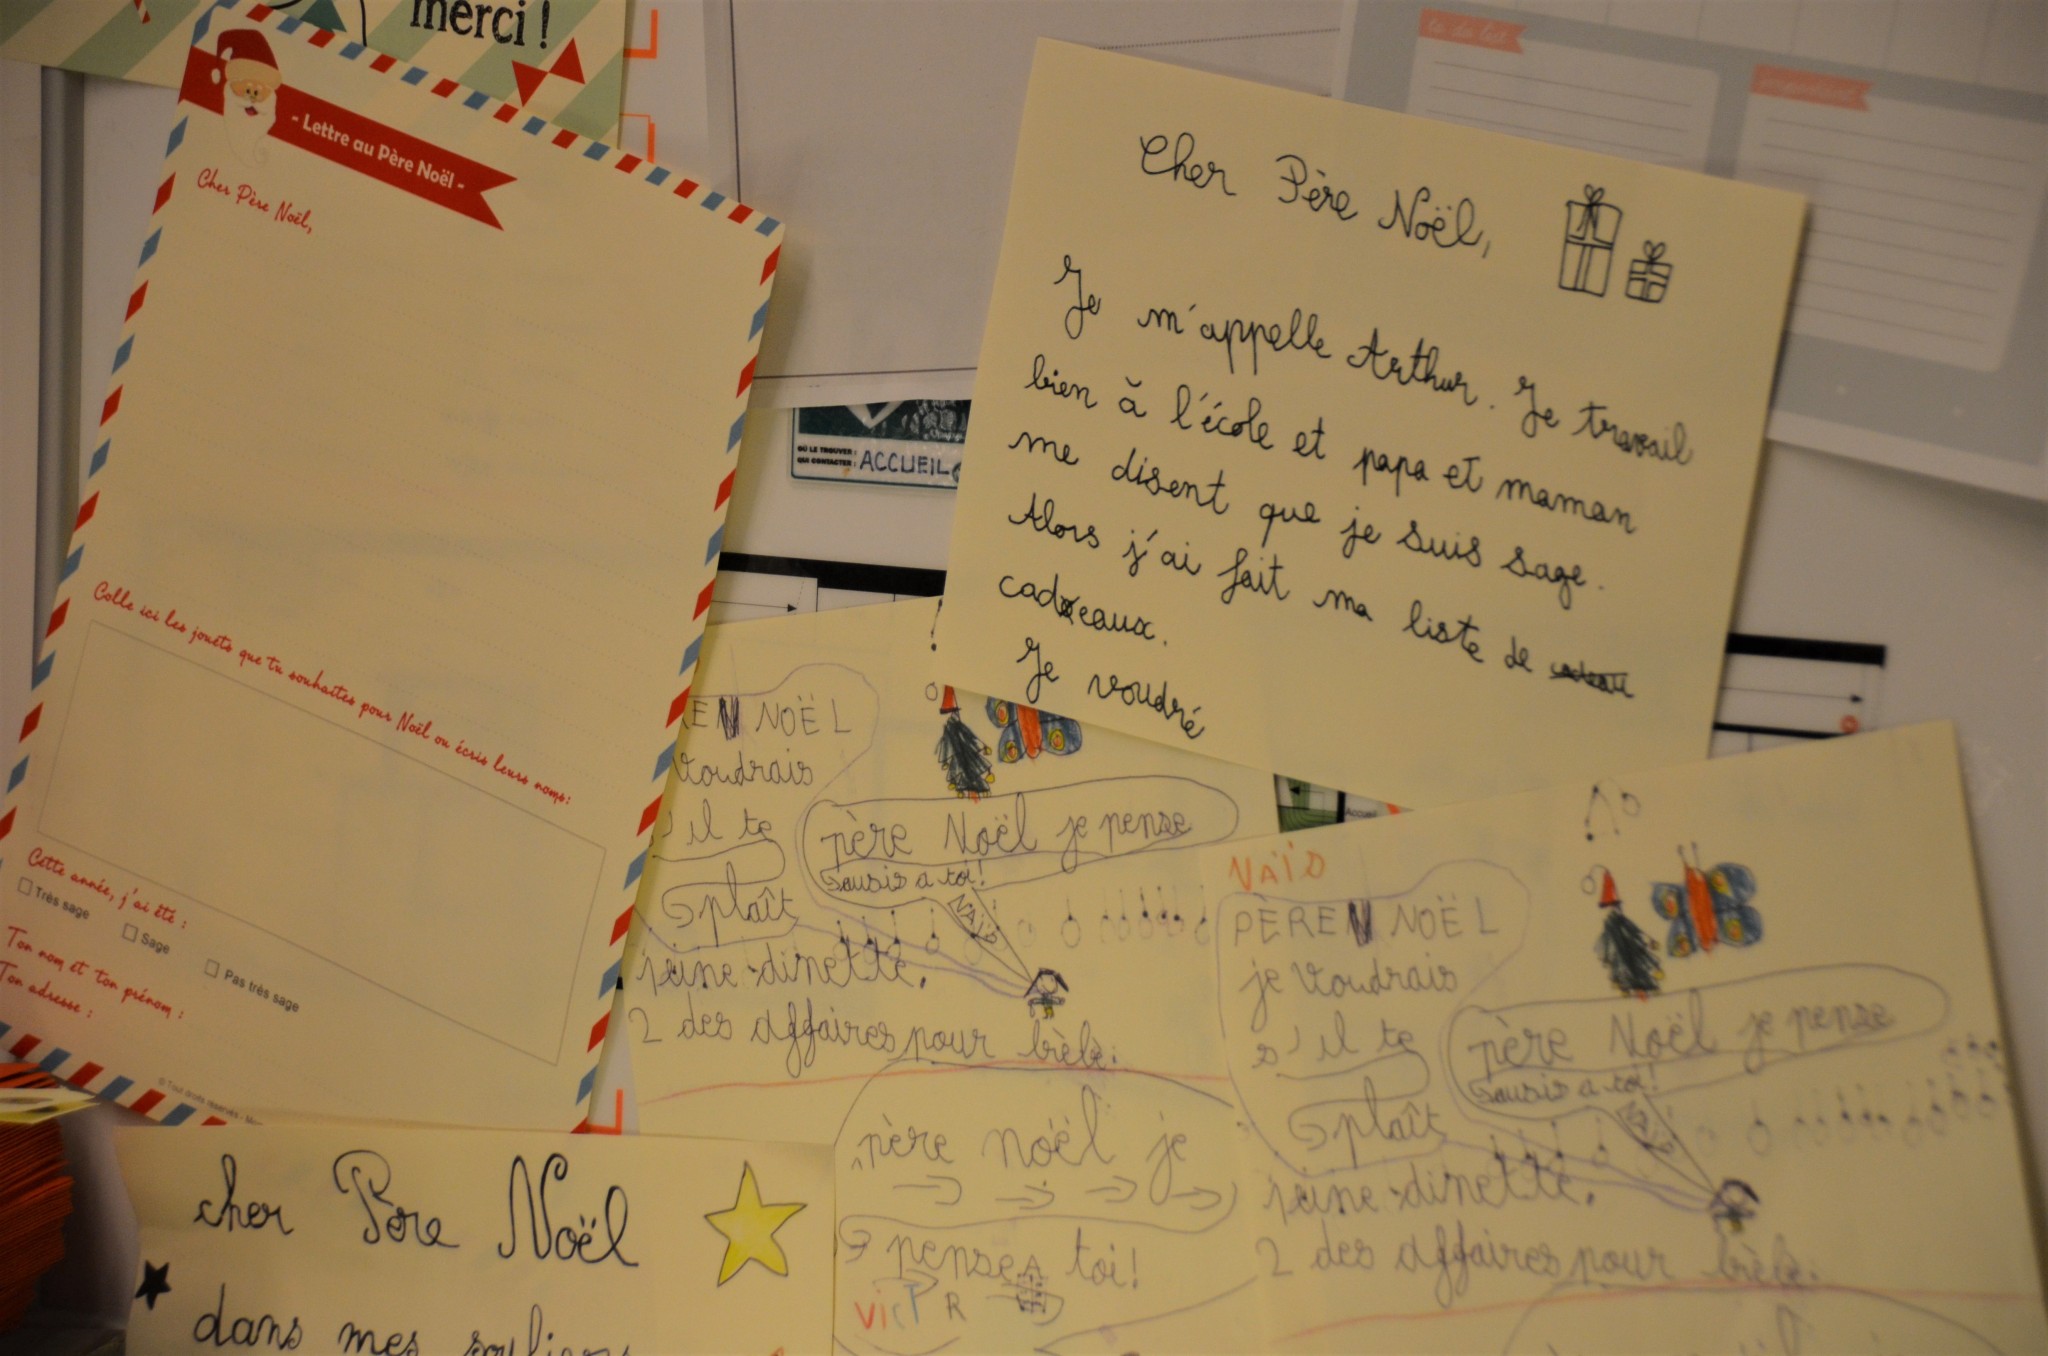 merci !
- Lettre au Père Noël -
Cher Père Noël,
Colle ici les jouets que tu souhaites pour Noël ou écris leurs noms:
Cette année, j'ai été :
Très sage
Sage
Pas très sage
Ton nom et ton prénom :
Ton adresse :
© Tout droits réservés -
to do list
OÙ LE TROUVER :
QUI CONTACTER : ACCUEIL
Cher Père Noël,
Je m'appelle Arthur. Je travail
bien à l'école et papa et maman
me disent que je suis sage.
Alors j'ai fait ma liste de
cadeaux.
Je voudré
EN NOËL
voudrais
il te
plaît
père Noël je pense
sousis a toi!
NAÏS
jeune dinette.
2 des affaires pour bèbè.
Accueil
père noël je
penses toi!
VICT R
NAÏS
PÈREN NOËL
je voudrais
s'il te
plaît
père Noël je pense
sousis a toi!
NAÏS
jeune dinette.
2 des affaires pour bèbè.
cher Père Noël
dans mes souliers